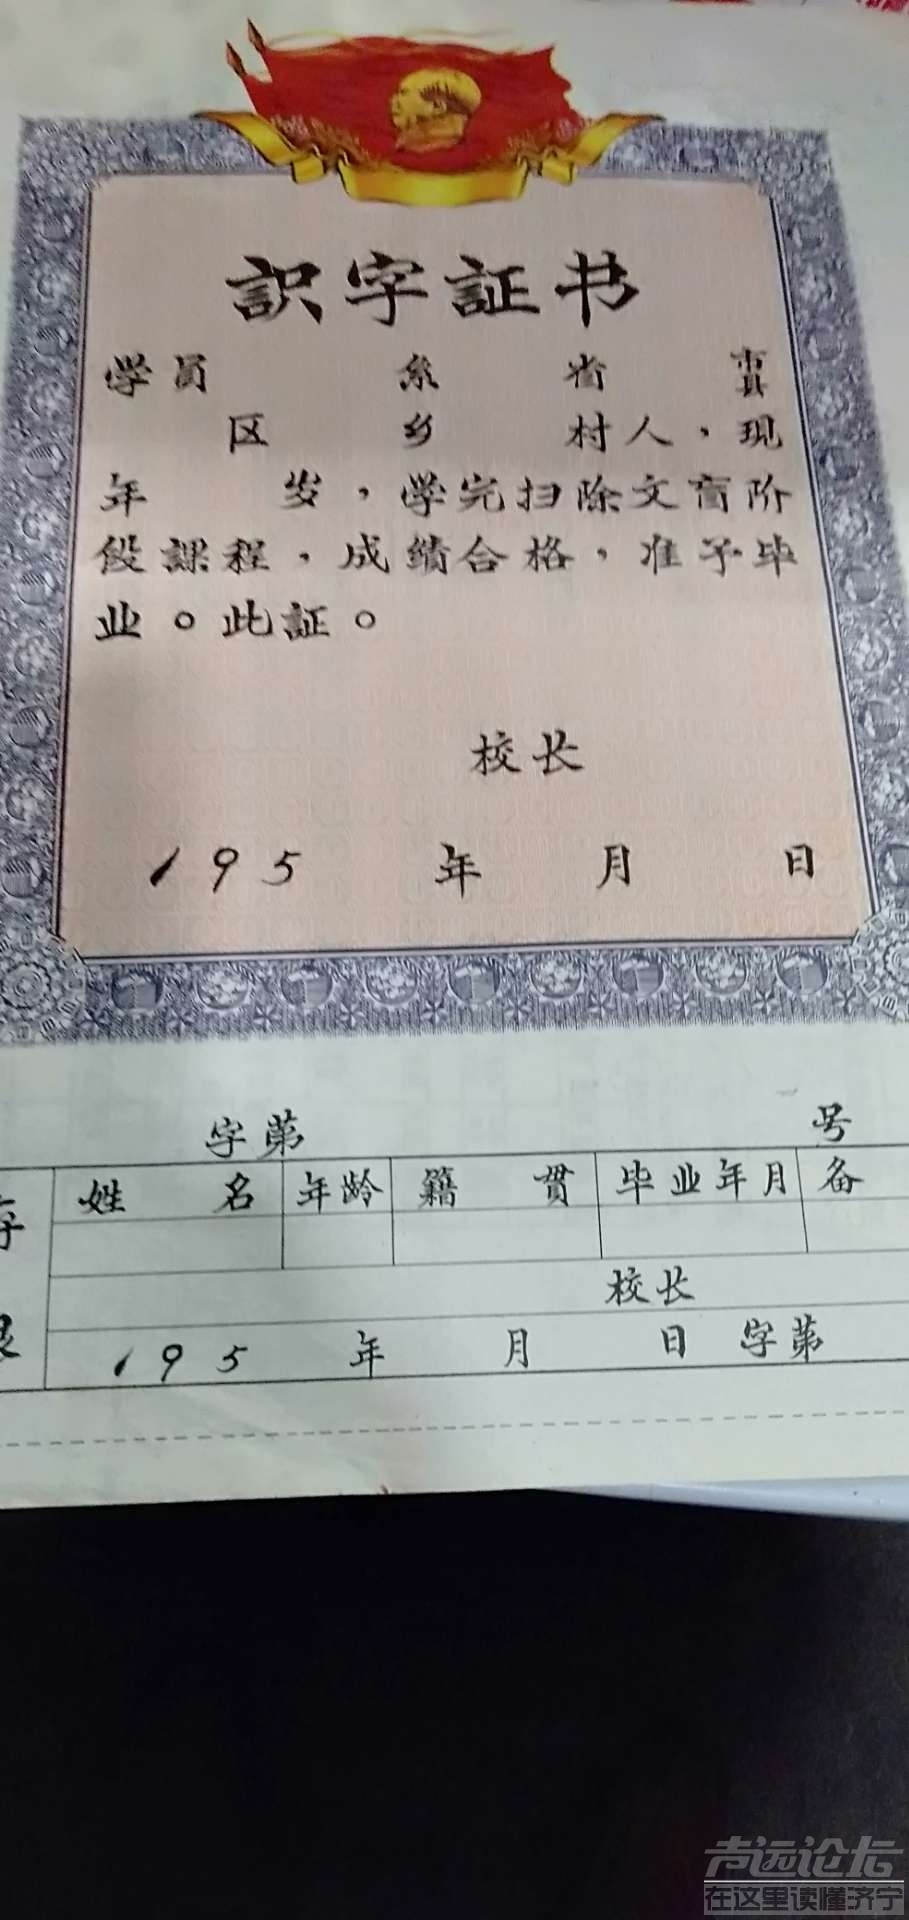 識字証书
学员 系 省 市县
区 乡 村人，现
年 岁，学完扫除文盲阶
段課程，成績合格，准予毕
业。此証。
校长
195 年 月 日
字第 号
存根
姓 名 年龄 籍 贯 毕业年月 备
校长
195 年 月 日 字第
声远论坛
在这里读懂济宁